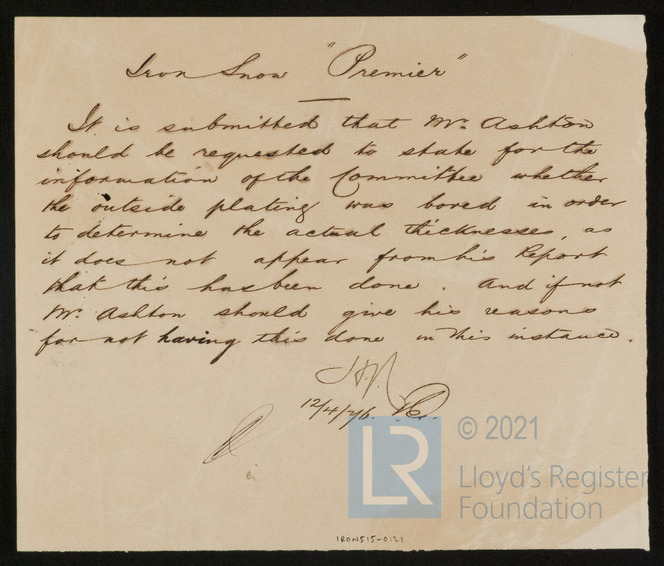 Iron Snow "Premier"
It is submitted that Mr. Ashton
should be requested to state for the
information of the Committee whether
the outside plating was bored in order
to determine the actual thicknesses, as
it does not appear from his Report
that this has been done. And if not
Mr. Ashton should give his reasons
for not having this done in this instance.
12/4/76.
© 2021
LR
Lloyd's Register
Foundation
IRON515-0121